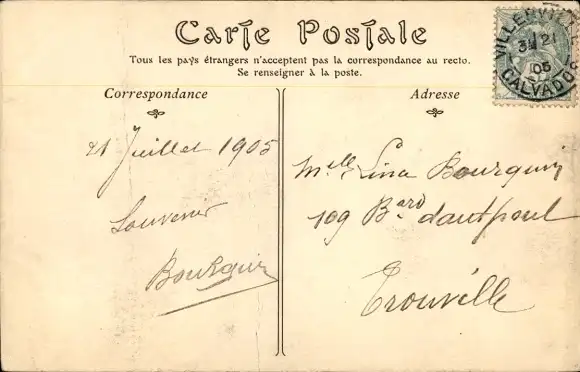 Carte Postale
Tous les pays étrangers n'acceptent pas la correspondance au recto.
Se renseigner à la poste.
Correspondance
Adresse
VILLERVILLE
3E 21
05
CALVADOS
21 Juillet 1905
Souvenir
Bourquin
Melle Lina Bourquin
109 Bard d'autpoul
Trouville